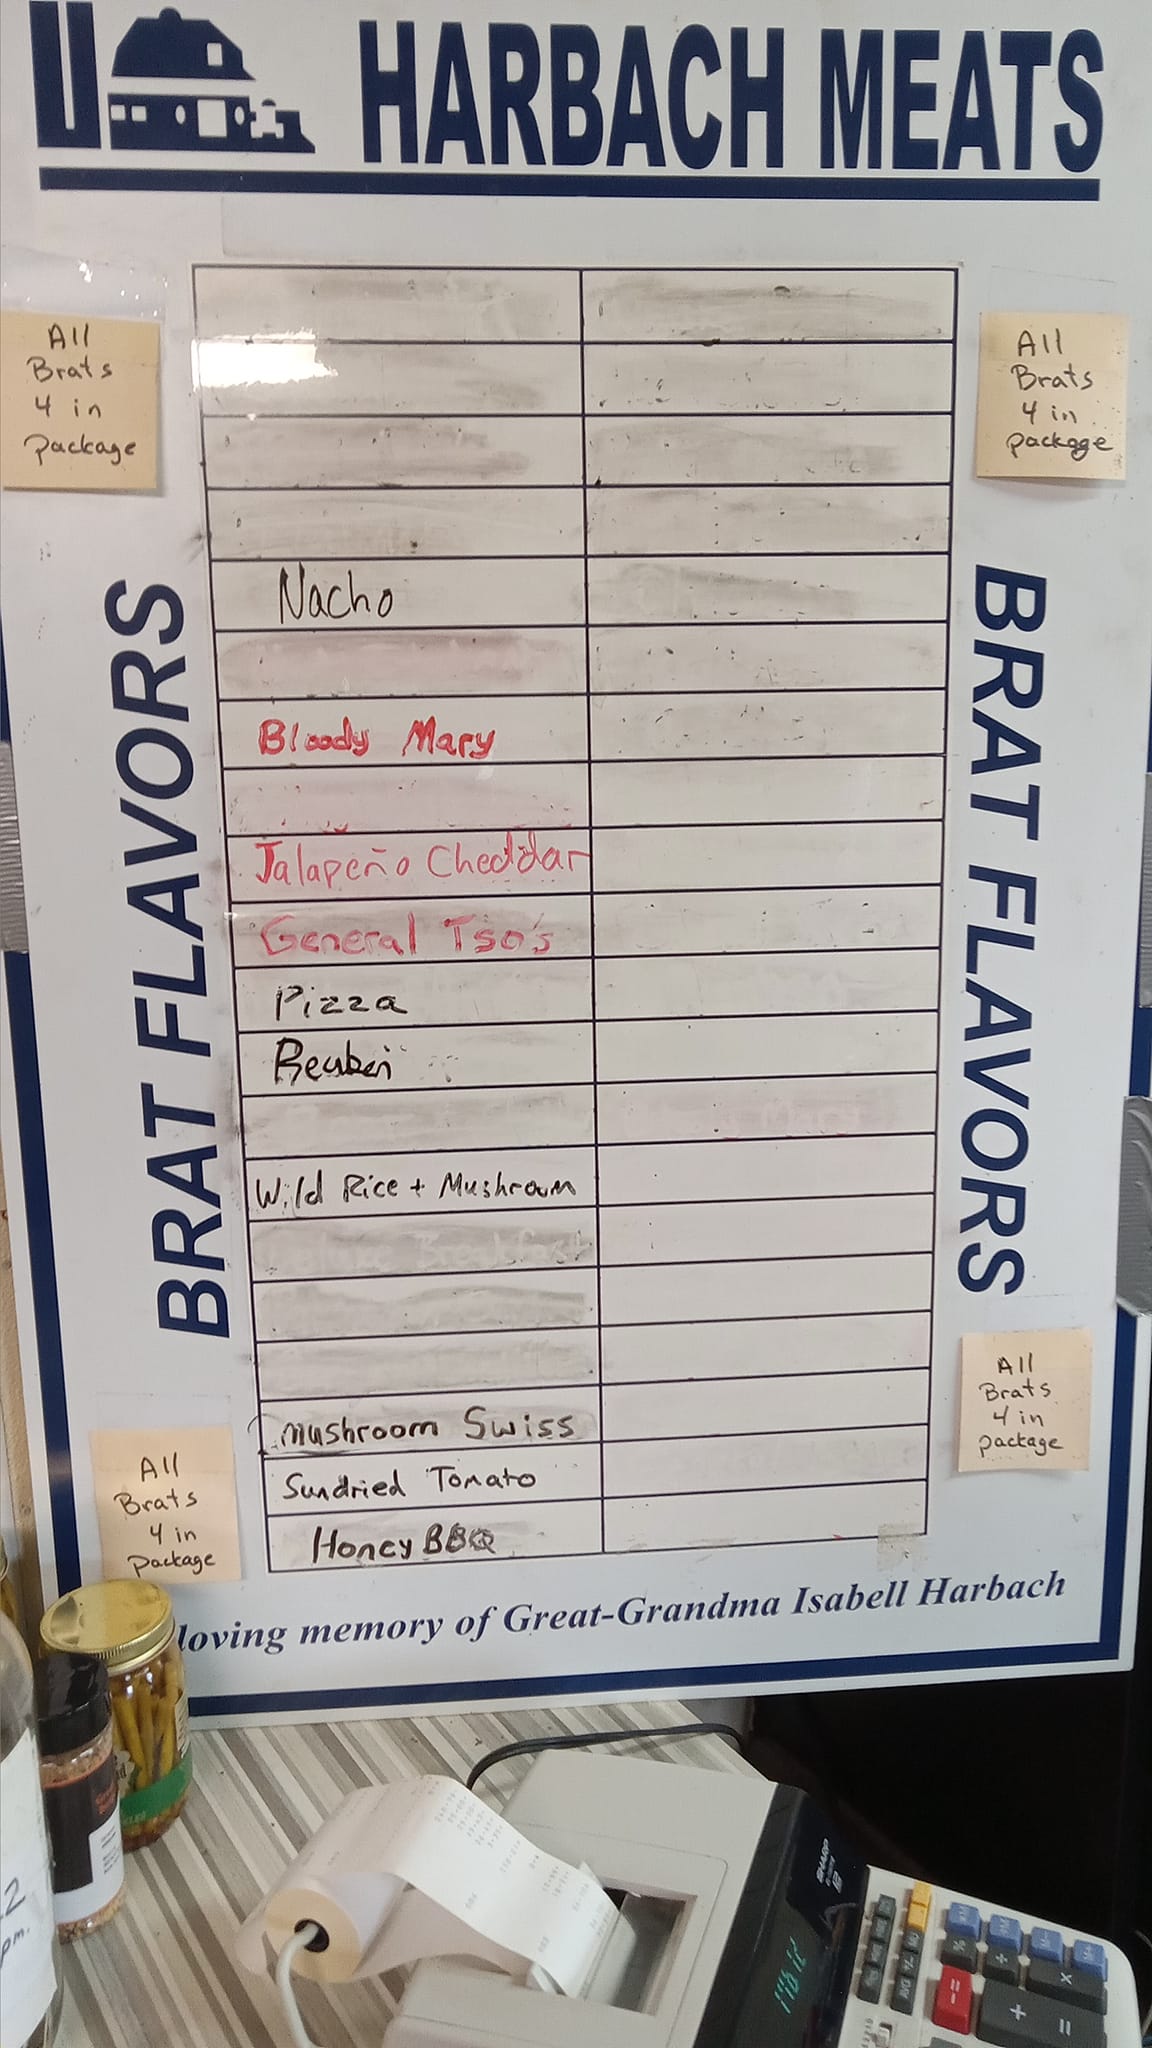 HARBACH MEATS
All
Brats
4 in
package
All
Brats
4 in
package
BRAT FLAVORS
BRAT FLAVORS
Nacho
Bloody Mary
Jalapeño Cheddar
General Tso's
Pizza
Reuben
Wild Rice + Mushroom
Breakfast
Mushroom Swiss
Sundried Tomato
Honey BBQ
All
Brats
4 in
package
All
Brats
4 in
package
loving memory of Great-Grandma Isabell Harbach
SHARP